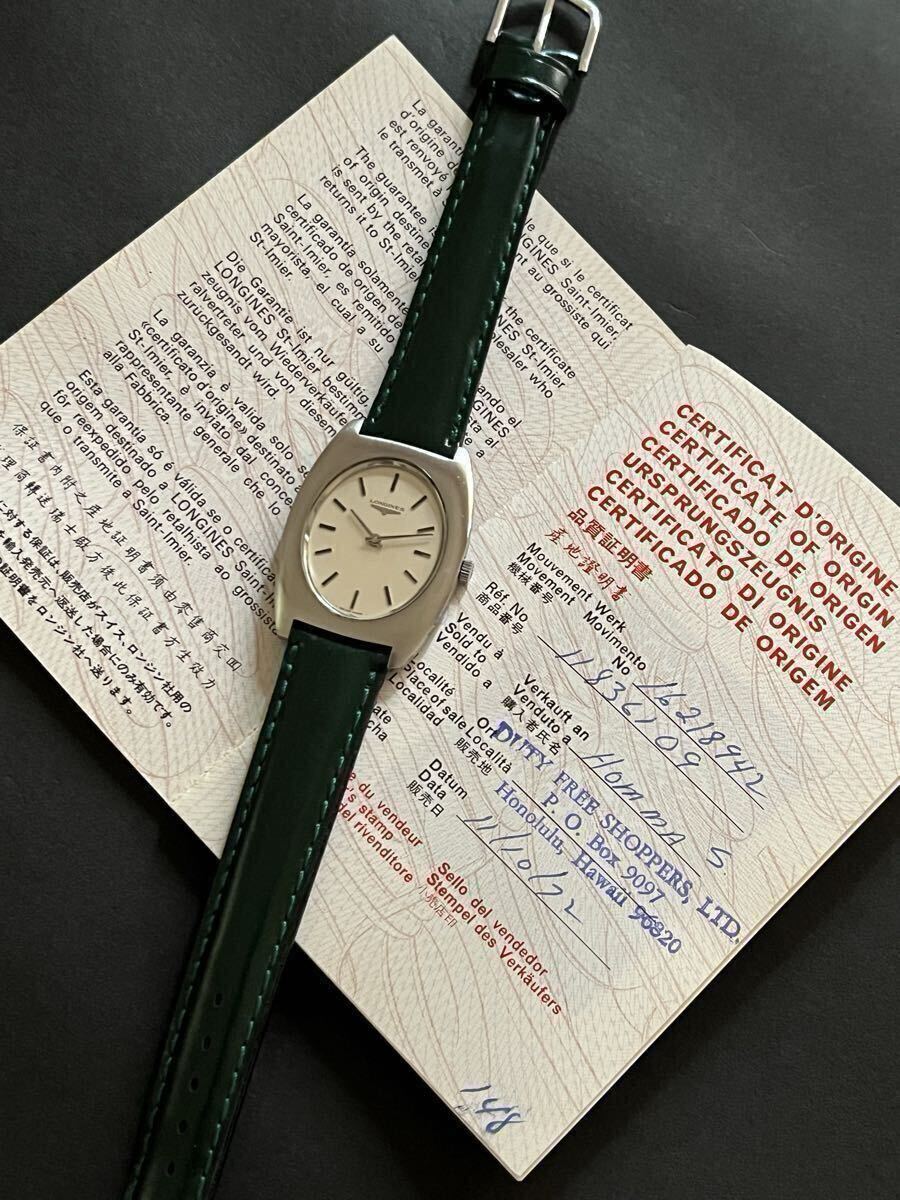 La garantie
d'origine d
est renvoyé
le transmet à
e que si le certificat
NGINES Saint-Imier
nt au grossiste qui
The guarantee
of origin destine
is sent by the reta
returns it to St-Im
the certificate
INES St-Imier
olesaler who
La garantía solamente
certificado de origen de
Saint-Imier, es remitido
mayorista, el cual a su
St-Imier.
ando el
NGINES
sta al
Die Garantie ist nur gültig
LONGINES St-Imier bestimm
zeugnis vom Wiederverkäufe
ralvertreter und von diesem
zurückgesandt wird.
La garanzia è valida solo s
«certificato d'origine» destinato a
St-Imier, è inviato dal conce
rappresentante generale che lo
alla Fabbrica
Esta garantia só é válida se o certifi
origem destinado a LONGINES
for reexpedido pelo retalhista
que o transmite a Saint-Imier.
ao grossista
保証書內附之產地証明書須由零售商交回
理商轉送瑞士廠方後此保証書方生效力
に対する保証は、販売店がスイス、ロンジン社用の
証明書をロンジン社へ返送した場合にのみ有効です。
LONGINES
CERTIFICAT D'ORIGINE
CERTIFICATE OF ORIGIN
CERTIFICADO DE ORIGEN
URSPRUNGSZEUGNIS
CERTIFICATO DI ORIGINE
CERTIFICADO DE ORIGEM
品質証明書
產地證明書
Mouvement Werk
Movement Movimento
機械番号 No 16218942
Réf. No
商品番号 11836109
Vendu à Verkauft an
Sold to Venduto a
Vendido a 購入者氏名 HOMMA S.
Localité Ort
Place of sale Località
Localidad 販売地
DUTY FREE SHOPPERS, LTD.
P. O. Box 9097
Honolulu, Hawaii 96820
Date Datum
Data
cha 販売日 11/10/72
du vendeur Sello del vendedor
's stamp Stempel des Verkäufers
del rivenditore 小売店印
148